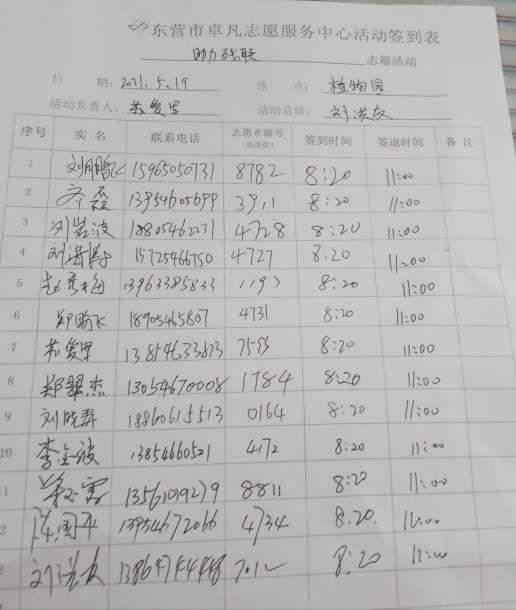 东营市卓凡志愿服务中心活动签到表
助力残联 志愿活动
日 期: 2021.5.19 地 点: 植物园
活动负责人: 苏爱星 活动总结:
序号 实名 联系电话 志愿者编号 (后四位) 签到时间 签退时间 备注
1 刘鹏飞 15965050731 8782 8:20 11:00
2 13954605699 3911 8:20 11:00
3 刘岩波 18805462231 4728 8:20 11:00
4 15725466750 4727 8:20 11:00
5 13963385833 8:20 11:00
6 郑腾飞 18905465807 4731 8:20 11:00
7 苏爱星 13854633873 8:20 11:00
8 郑翠杰 13054670008 1784 8:20 11:00
9 刘晓群 18860615513 0164 8:20 11:00
10 李金波 13854660521 4172 8:20 11:00
1 13561019279 8811 8:20 11:00
2 陈国平 13954672066 4734 8:20. 11:00
3 8:20 11:00